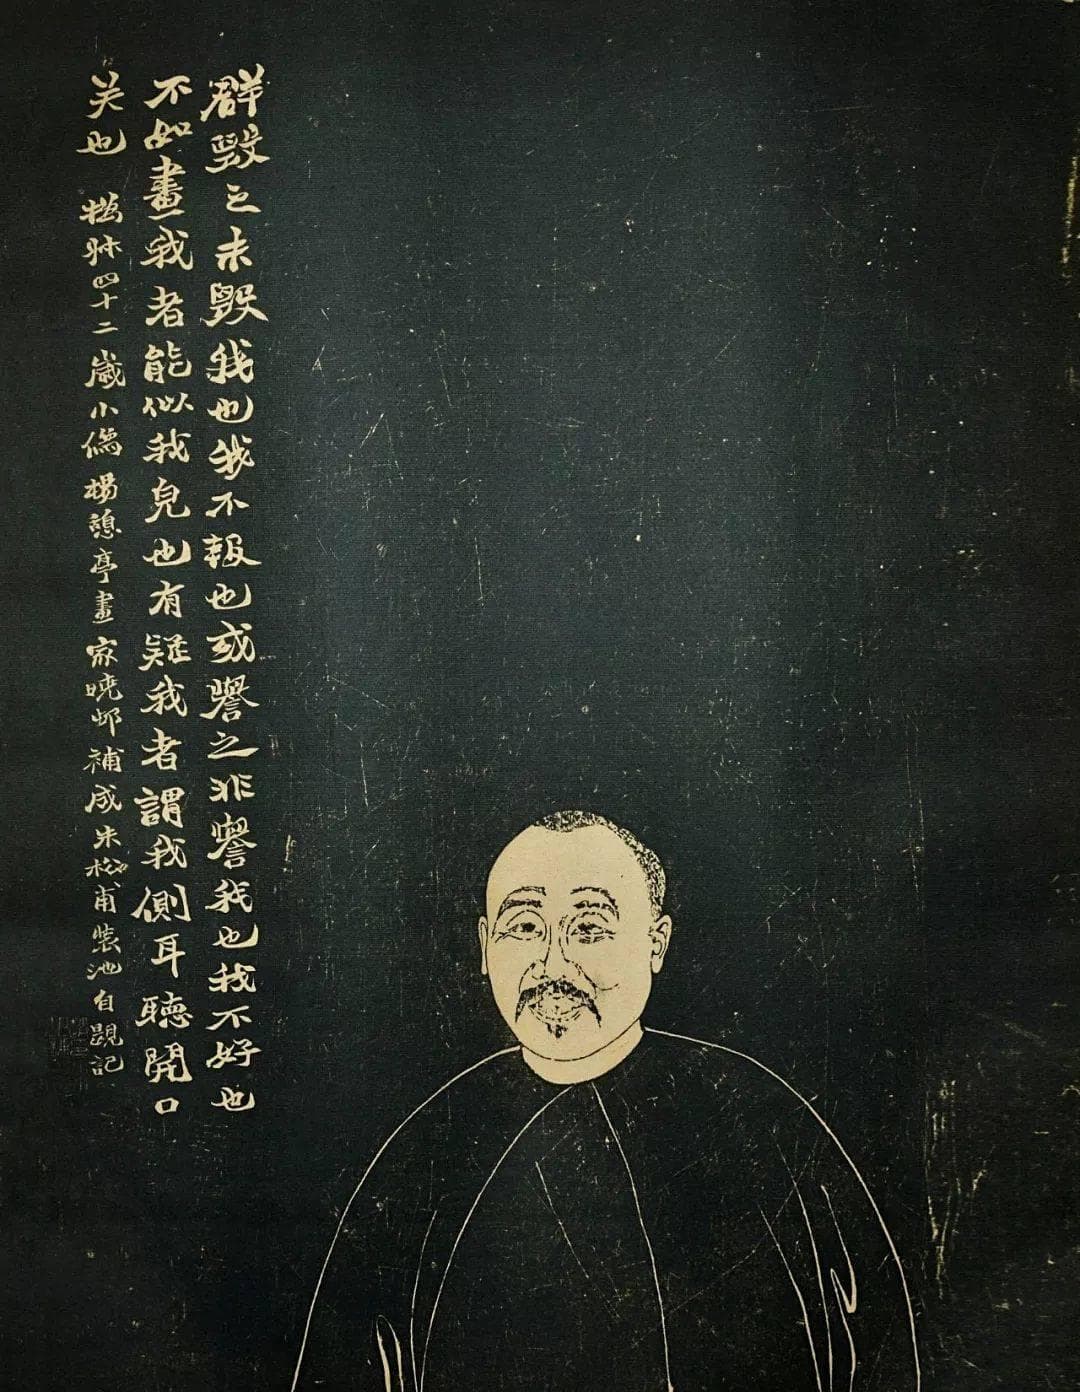 群毀之未毀我也我不報也或譽之非譽我也我不好也
不如畫我者能似我皃也有疑我者謂我側耳聽開口
关也 撝叔四十二歲小像楊憩亭畫家曉邨補成朱松甫裝池自題記